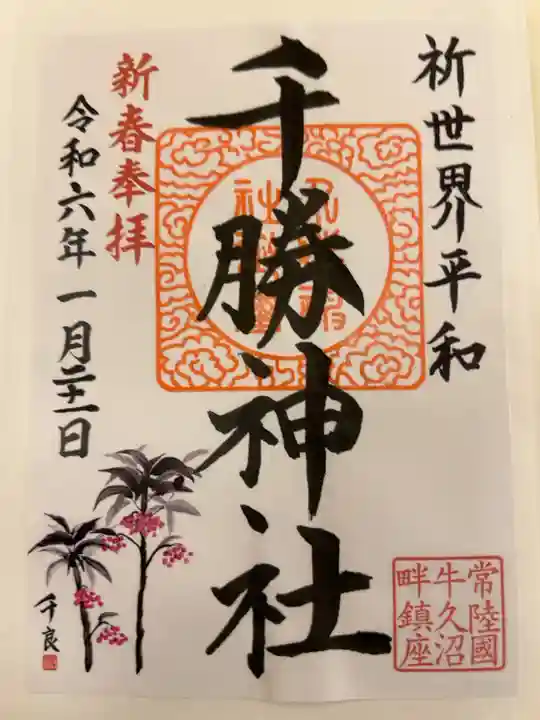 祈世界平和
千勝神社
新春奉拝
令和六年一月二十一日
常陸國
牛久沼
畔鎮座
千良